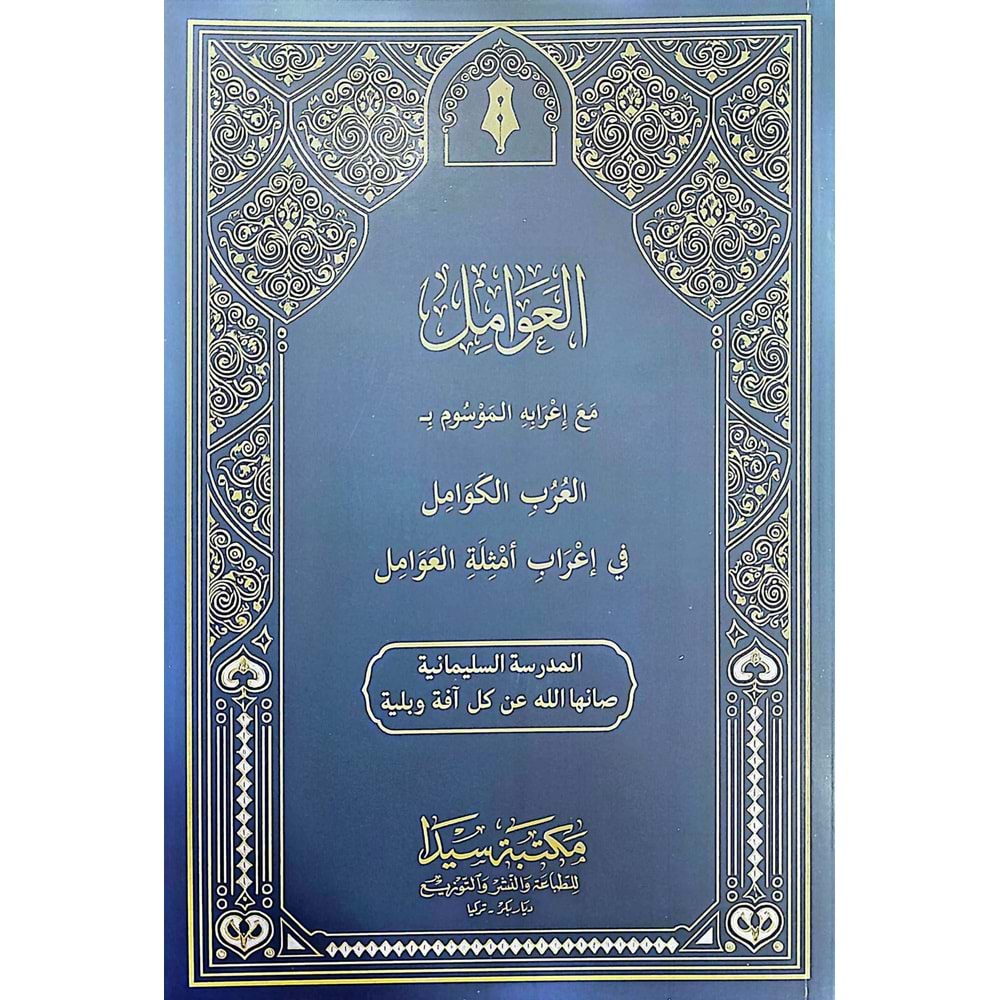 العَوَامِل
مَعَ إِعْرَابِهِ المَوْسُومِ بِـ
العُرُبِ الكَوَامِل
في إِعْرَابِ أَمْثِلَةِ العَوَامِل
المدرسة السليمانية
صانها الله عن كل آفة وبلية
مَكتَبَة سَيْدَا
لِلطِّبَاعَةِ وَالنَّشْرِ وَالتَّوْزِيع
ديار بكر - تركيا